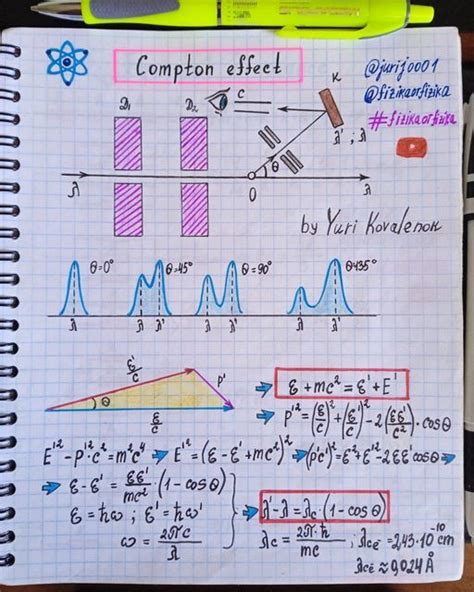 Compton effect
@jurij0001
@fizikaorfizika
#fizikaorfizika
D₁ D₂ C K
λ' ; λ
θ
λ O λ
by Yuri Kovalenok
θ=0° θ=45° θ=90° θ=135°
λ λ λ' λ λ' λ λ'
ε'/c p'
θ
ε/c
ε + mc² = ε' + E'
p'² = (ε/c)² + (ε'/c)² - 2(εε'/c²)·cosθ
E'² - p'²·c² = m²c⁴ ⇒ E'² = (ε - ε' + mc²)² ⇒ (p'c)² = ε² + ε'² - 2εε'cosθ ⇒
⇒ ε - ε' = εε'/mc² · (1 - cosθ)
ε = ħω ; ε' = ħω'
ω = 2πc/λ
⇒ λ' - λ = λc·(1 - cosθ)
λc = 2π·ħ/mc ; λcē = 2,43·10⁻¹⁰ cm
λcē ≈ 0,024 Å